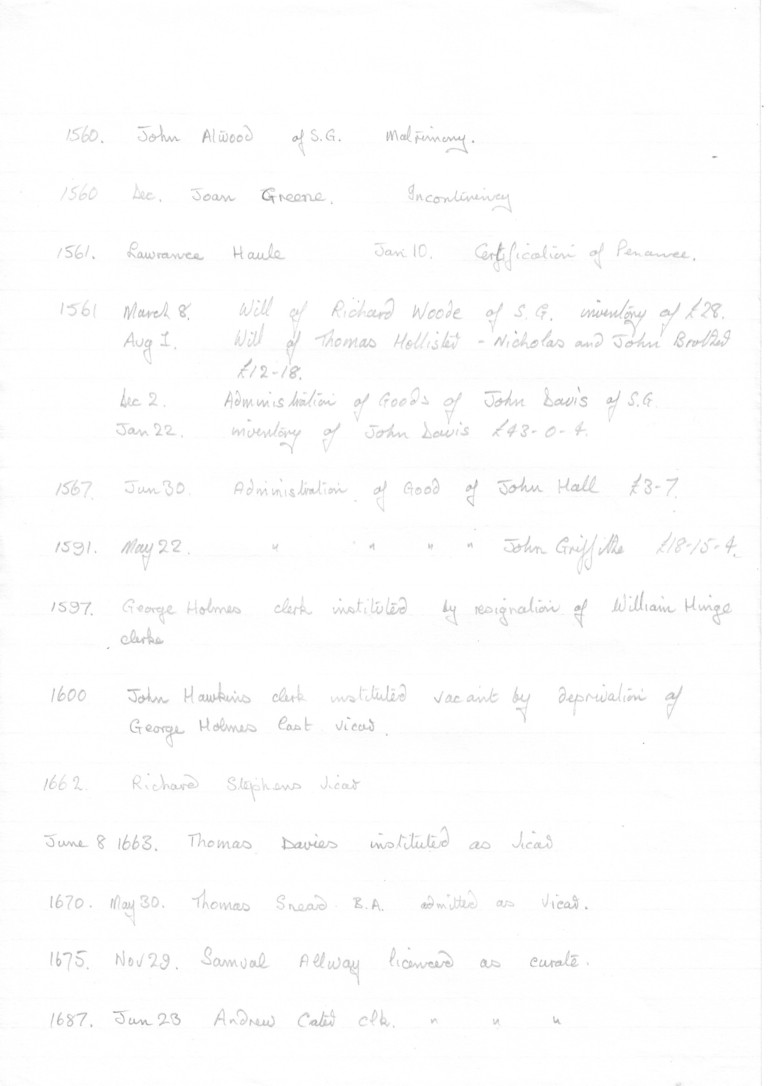 1560. John Alwood of S.G. Matrimony.
1560 Dec. Joan Greene. Incontinency
1561. Lawrance Haule Jan 10. Certification of Penance.
1561 March 8. Will of Richard Woode of S.G. inventory of £28.
Aug 1. Will of Thomas Hollister - Nicholas and John Brother
£12-18.
Dec 2. Administration of Goods of John Davis of S.G.
Jan 22. inventory of John Davis £43-0-4.
1567. Jun 30. Administration of Good of John Hall £3-7
1591. May 22. " " " " John Griffithe £18-15-4.
1597. George Holmes clerk instituted by resignation of William Hinge
clerke
1600 John Hawkins clerk instituted vacant by deprivation of
George Holmes last vicar.
1662. Richard Stephens Vicar
June 8 1663. Thomas Davies instituted as Vicar
1670. May 30. Thomas Snead B.A. admitted as Vicar.
1675. Nov 29. Samual Allway licenced as curate.
1687. Jun 23 Andrew Cater clk. " " "